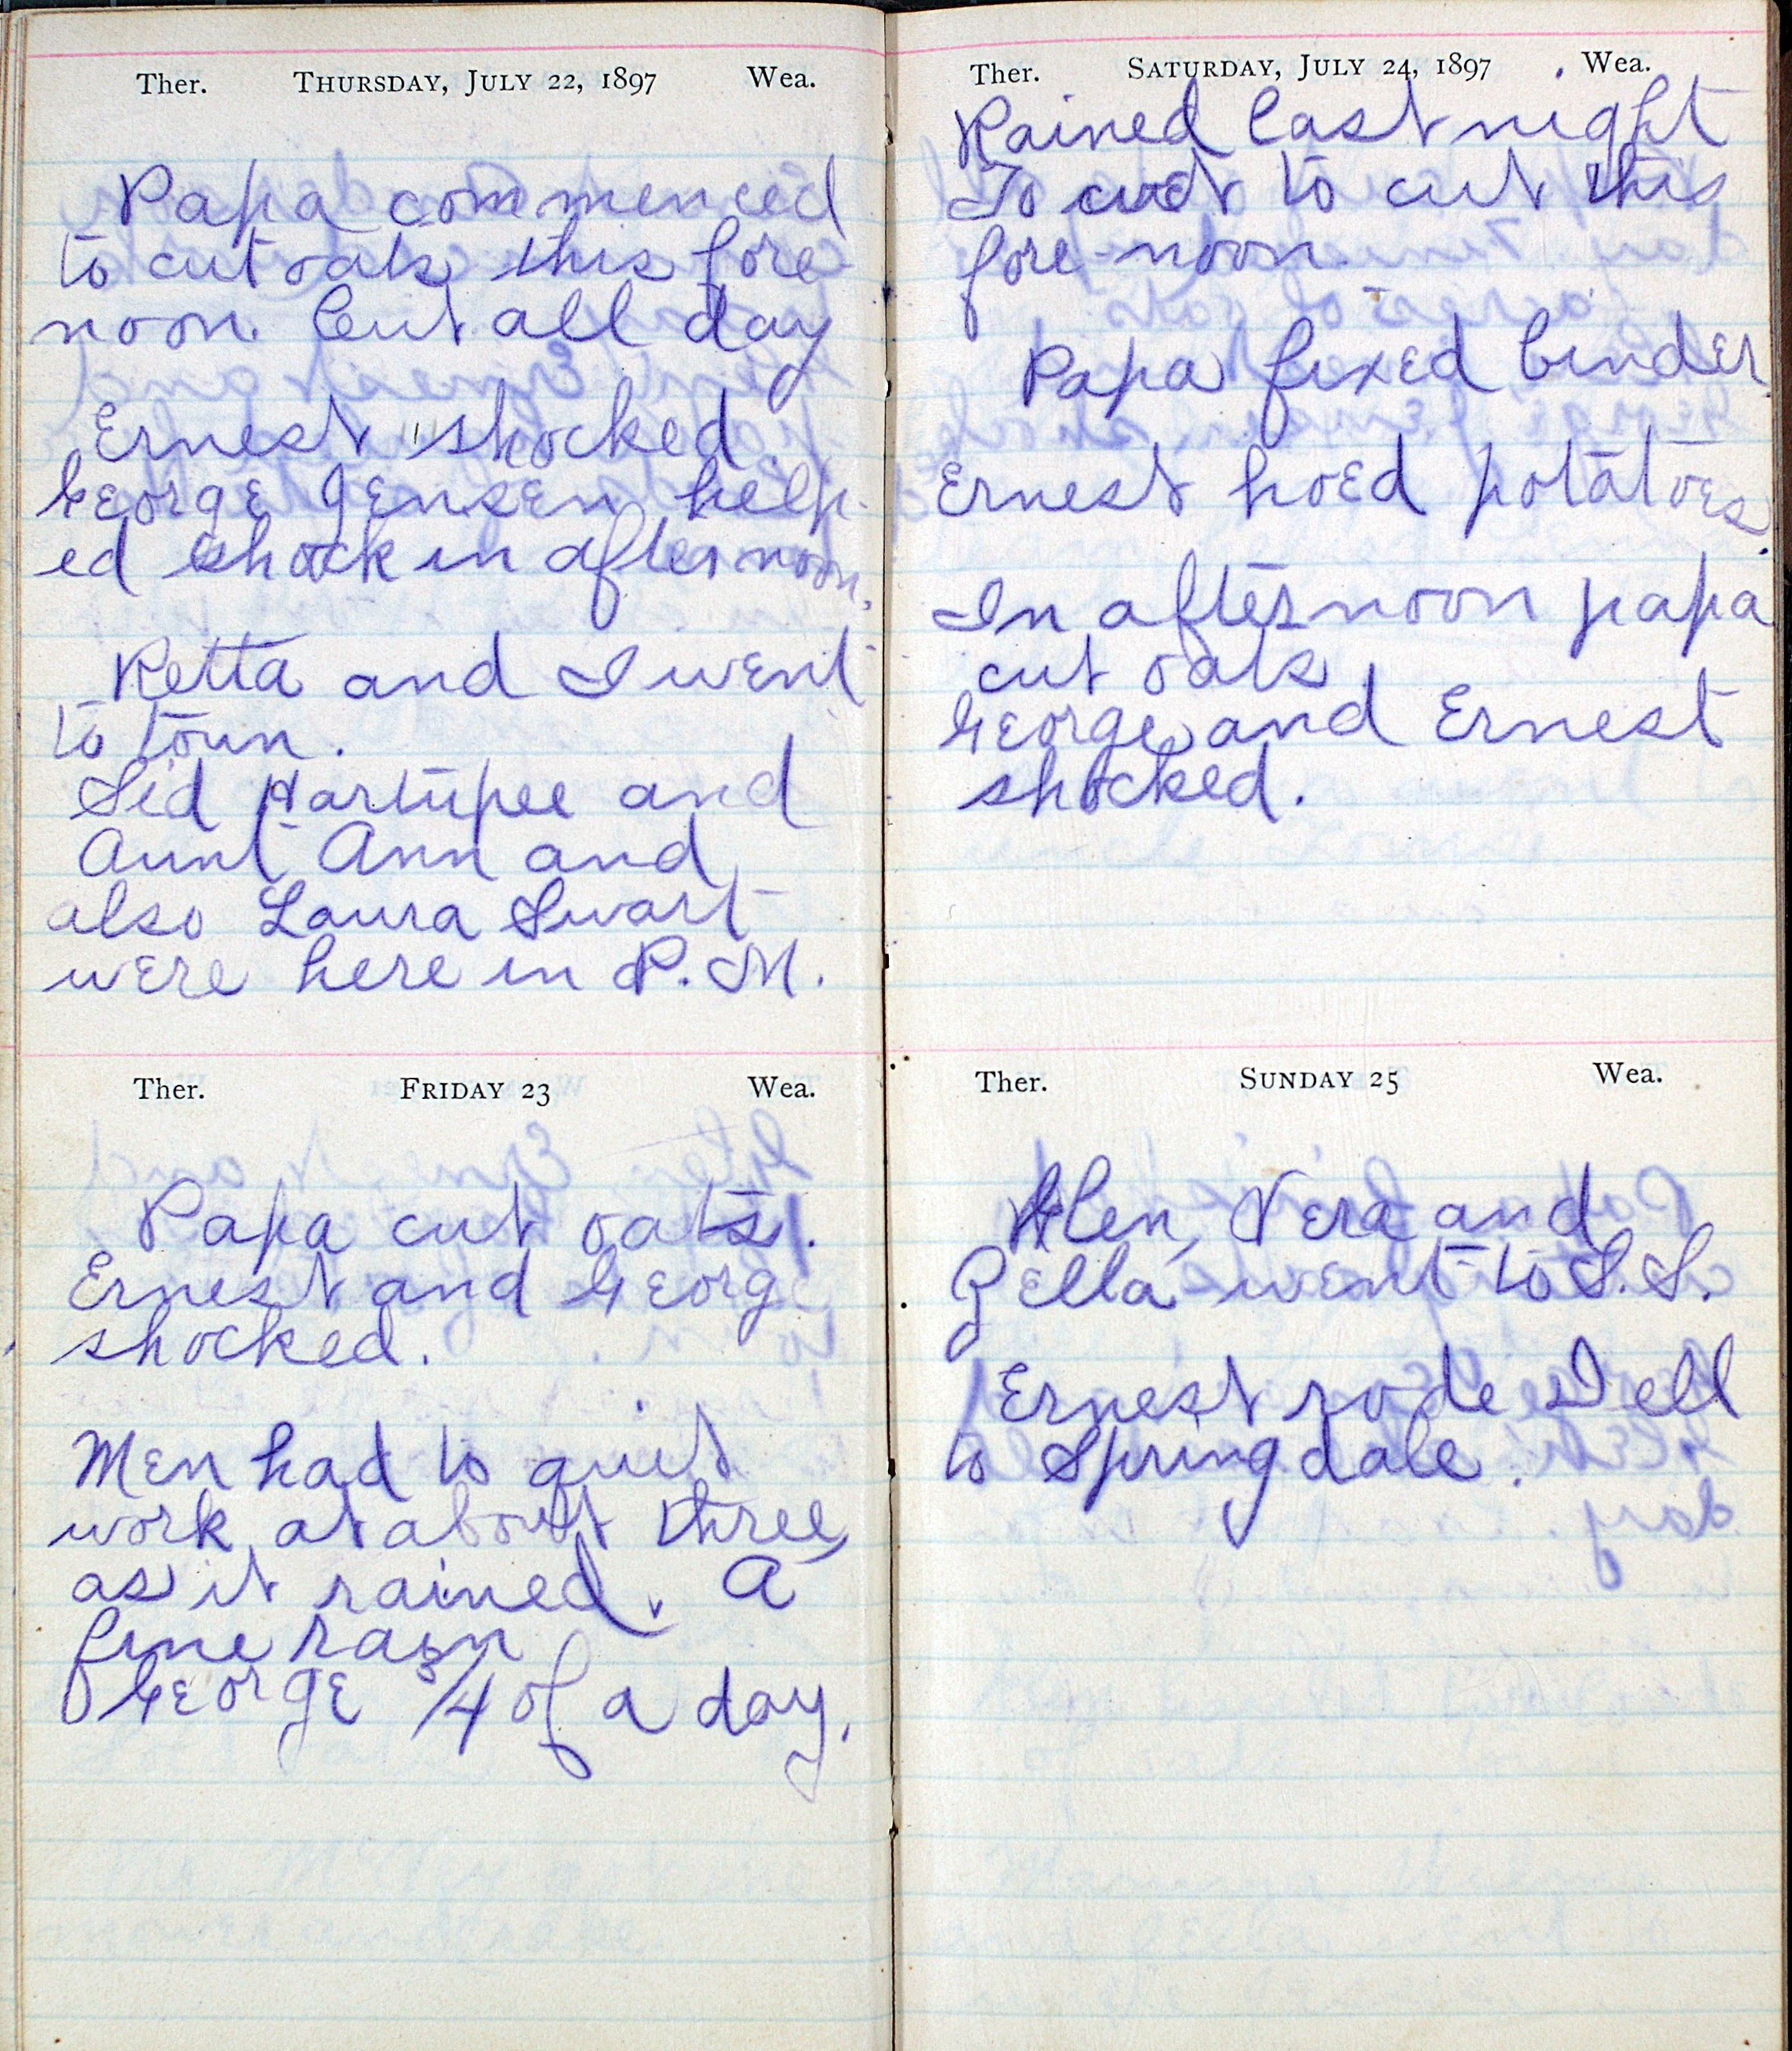 Ther. THURSDAY, JULY 22, 1897 Wea.
Papa commenced
to cut oats this fore-
noon. Cut all day
Ernest shocked.
George Jensen help-
ed shock in afternoon.
Retta and I went
to town.
Sid Hartupee and
Aunt Ann and
also Laura Swart
were here in P.M.
Ther. FRIDAY 23 Wea.
Papa cut oats.
Ernest and George
shocked.
Men had to quit
work at about three,
as it rained. A
fine rain
George 3/4 of a day.
Ther. SATURDAY, JULY 24, 1897 Wea.
Rained last night
To wet to cut this
fore-noon.
Papa fixed binder.
Ernest hoed potatoes.
In afternoon papa
cut oats
George and Ernest
shocked.
Ther. SUNDAY 25 Wea.
Glen, Vera and
Zella went to S.S.
Ernest rode Dell
to Springdale.